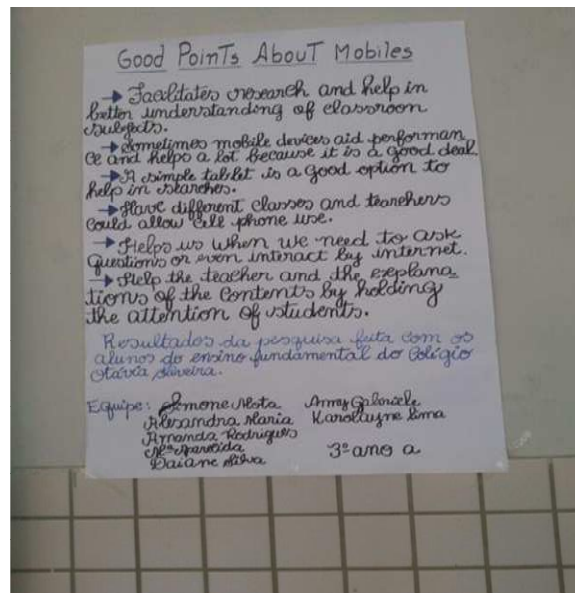 Good Points About Mobiles
→ Facilitates research and help in
better understanding of classroon
subjects.
→ Sometimes mobile devices aid performan
ce and helps a lot because it is a good deal
→ A simple tablet is a good option to
help in searches.
→ Have different classes and teanchers
could allow cell phone use.
→ Helps us when we need to ask
questions or even interact by internet.
→ Help the teacher and the explana-
tions of the contents by holding
the attention of students.
Resultados da pesquisa feita com os
alunos do ensino fundamental do Colégio
Otávia Silveira.
Equipe: Simone Mota Anny Gabriele
Alexandra Maria Karolayne Lima
Amanda Rodrigues
Mª Aparecida 3º ano a
Daiane Silva